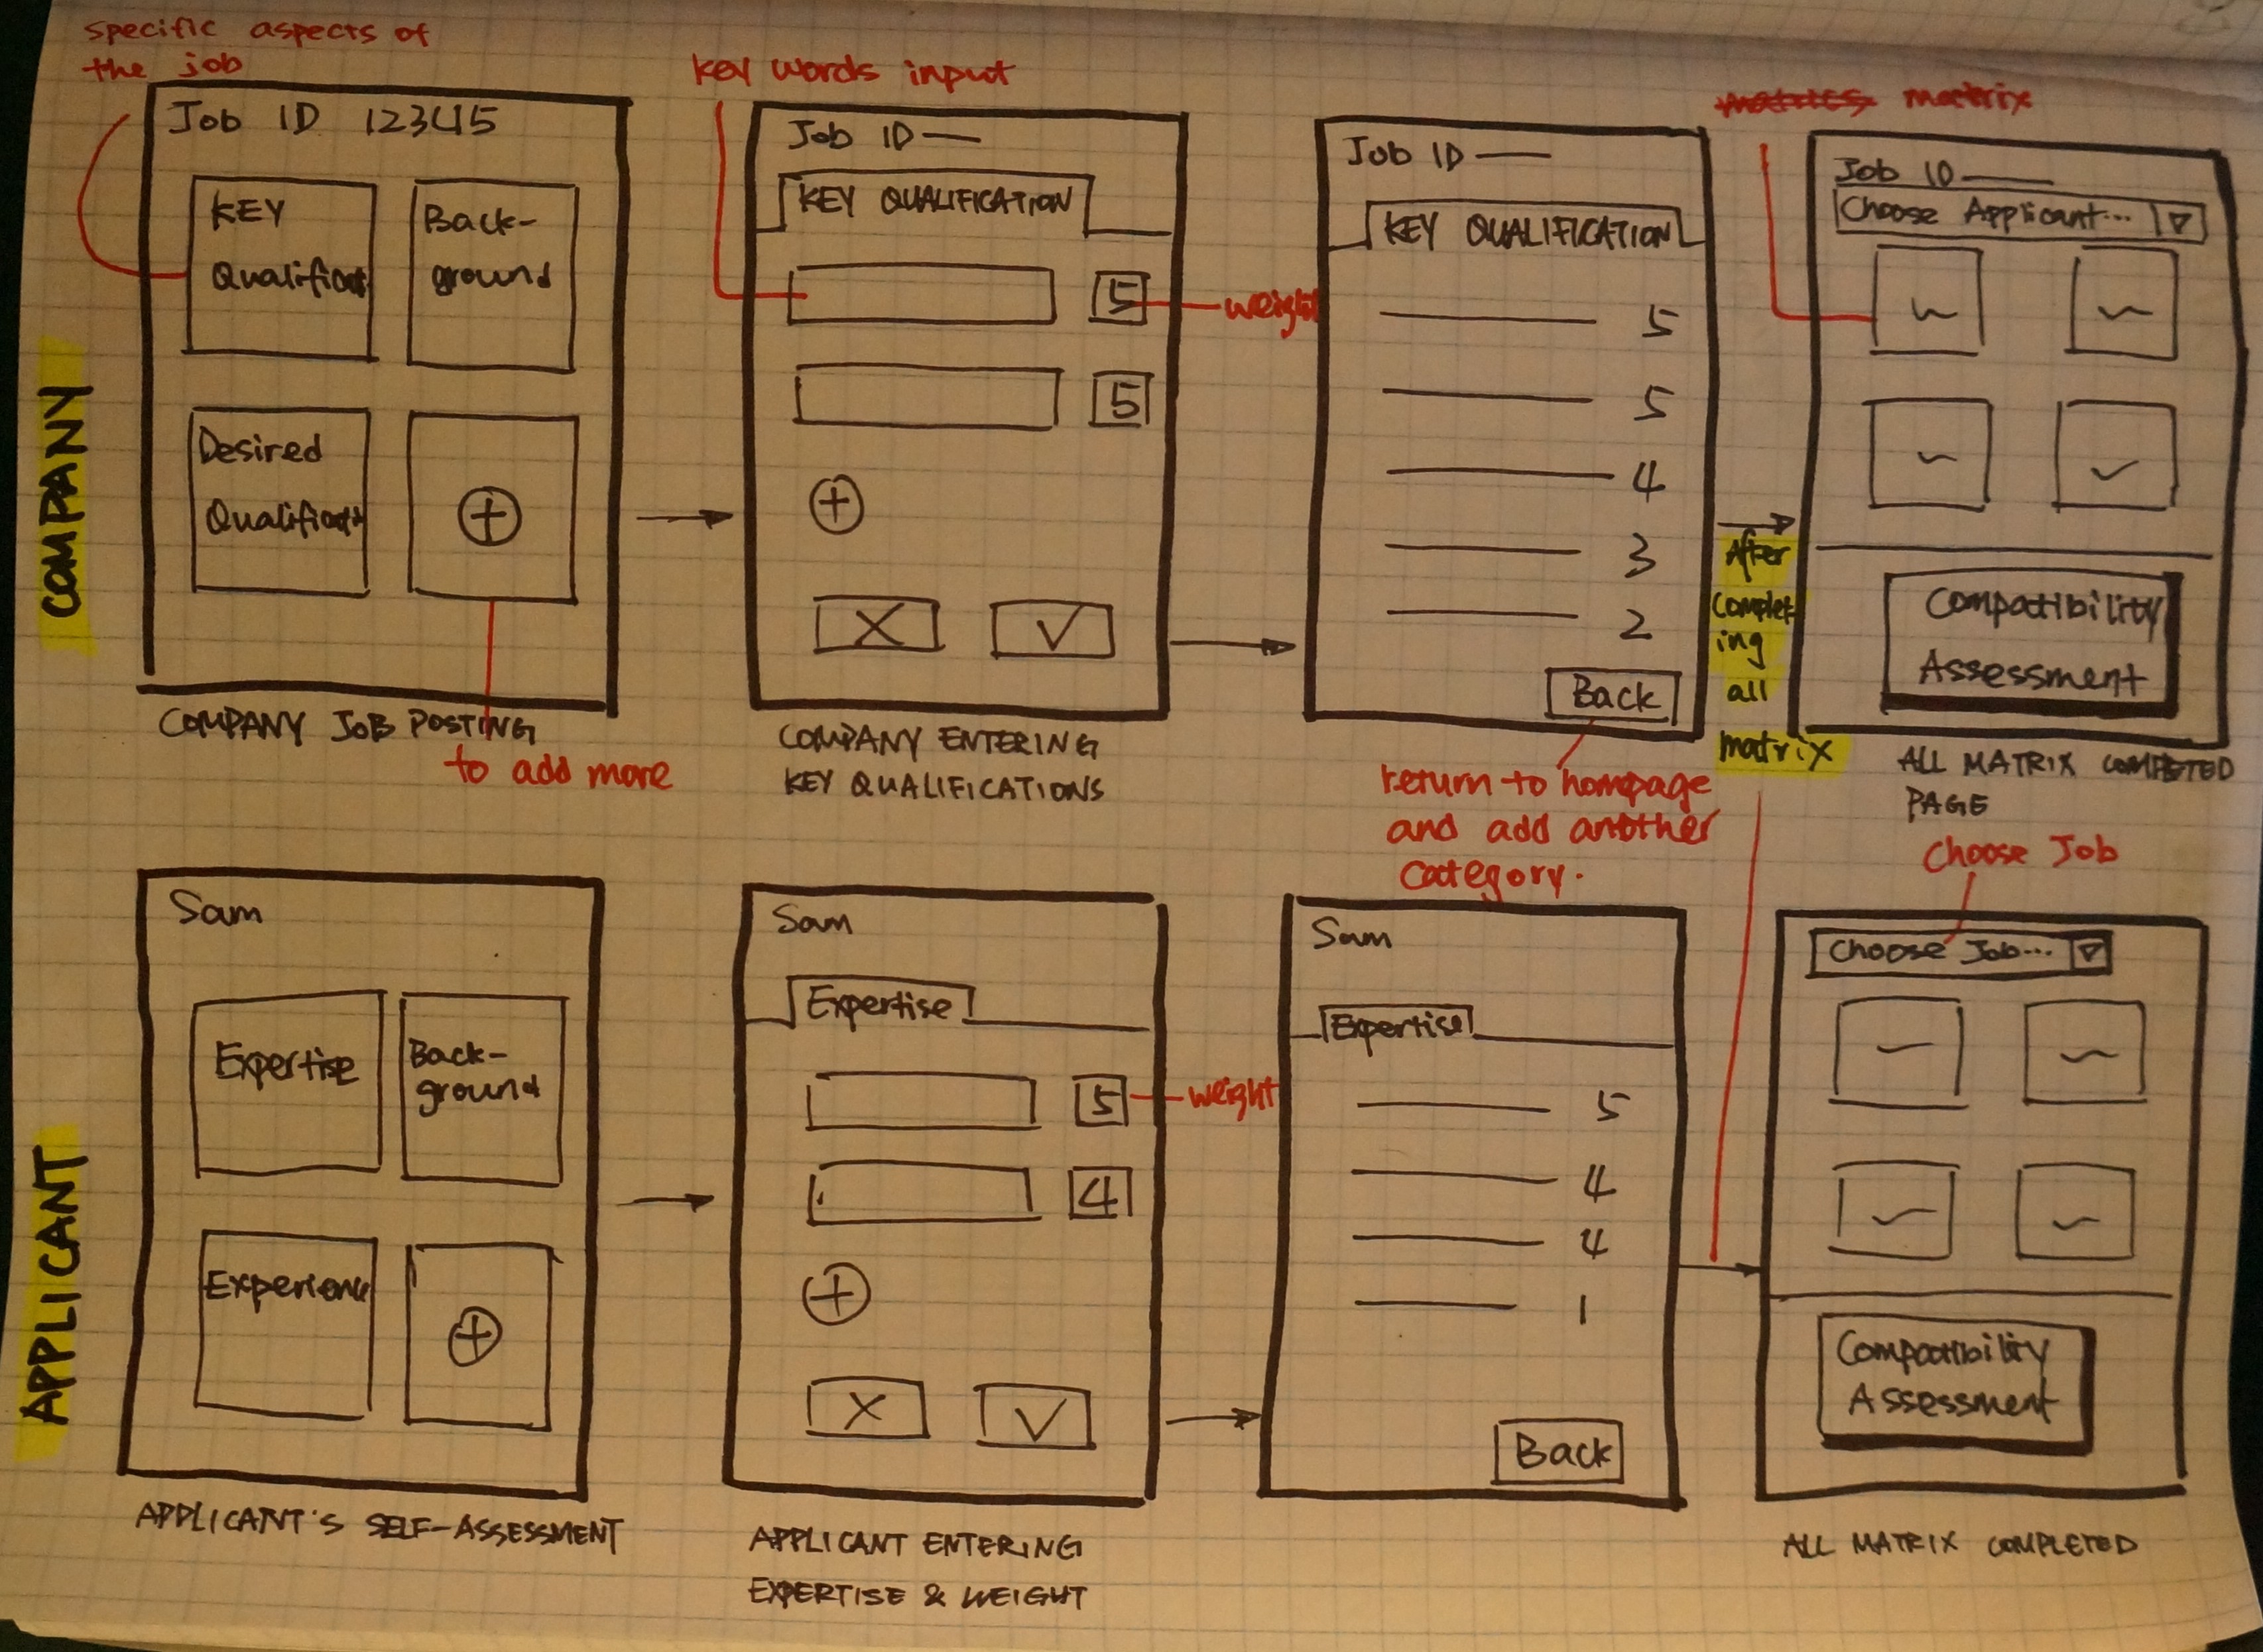 specific aspects of
the job
Job ID 12345
KEY
Qualificat
Back-
ground
Desired
Qualificati
COMPANY JOB POSTING
to add more
COMPANY
key words input
Job ID
KEY QUALIFICATION
5
weight
5
X
COMPANY ENTERING
KEY QUALIFICATIONS
Job ID
KEY QUALIFICATION
5
5
4
3
2
Back
return to hompage
and add another
category.
After
complet-
ing
all
matrix
matrix
Job ID
Choose Applicant...
Compatibility
Assessment
ALL MATRIX COMPLETED
PAGE
APPLICANT
Sam
Expertise
Back-
ground
Experienc
APPLICANT'S SELF-ASSESSMENT
Sam
Expertise
5
weight
4
X
APPLICANT ENTERING
EXPERTISE & WEIGHT
Sam
Expertise
5
4
4
1
Back
Choose Job
Choose Job...
Compatibility
Assessment
ALL MATRIX COMPLETED